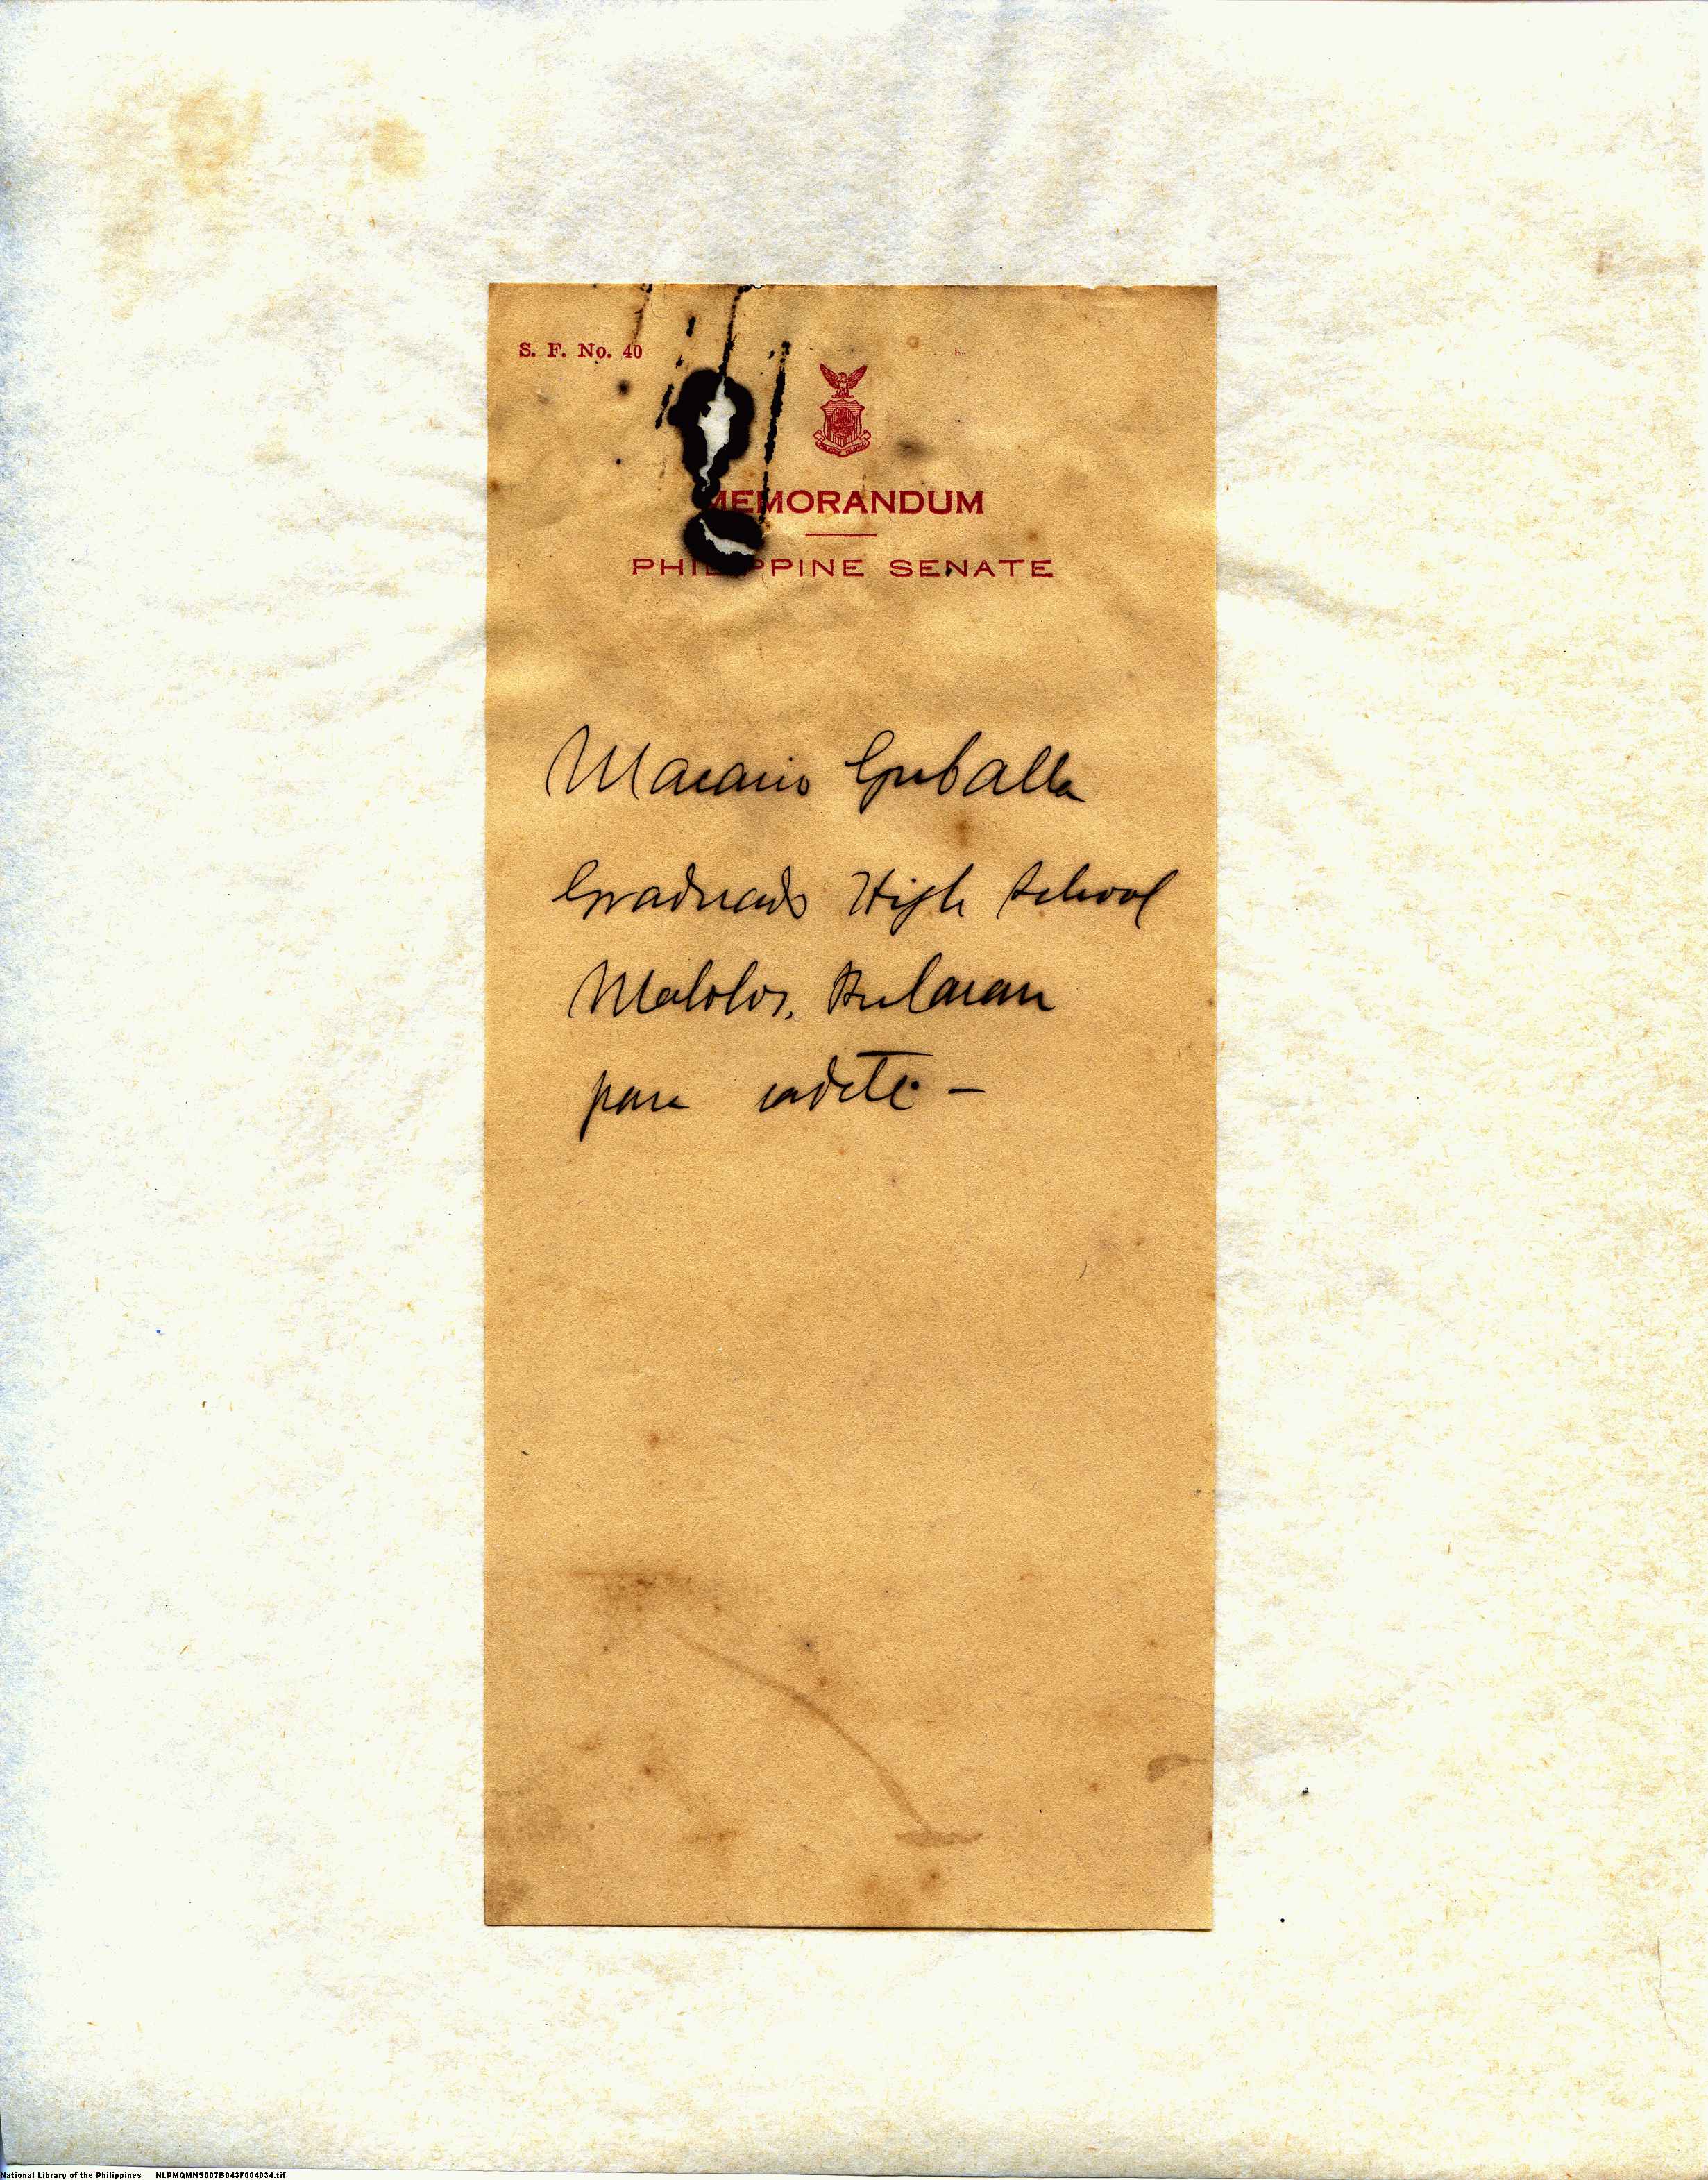 S. F. No. 40
MEMORANDUM
PHILIPPINE SENATE
Macario Guballa
Graduado High School
Malolos, Bulacan
para cadete. —
National Library of the Philippines NLPMQMNS007B043F004034.tif